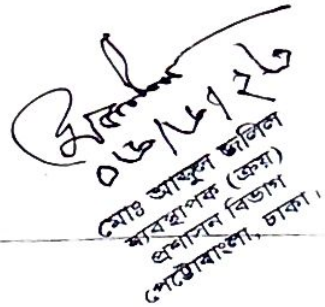 ০৬/৮/২৬
মোঃ আব্দুল জলিল
ব্যবস্থাপক (ক্রয়)
প্রশাসন বিভাগ
পেট্রোবাংলা, ঢাকা।